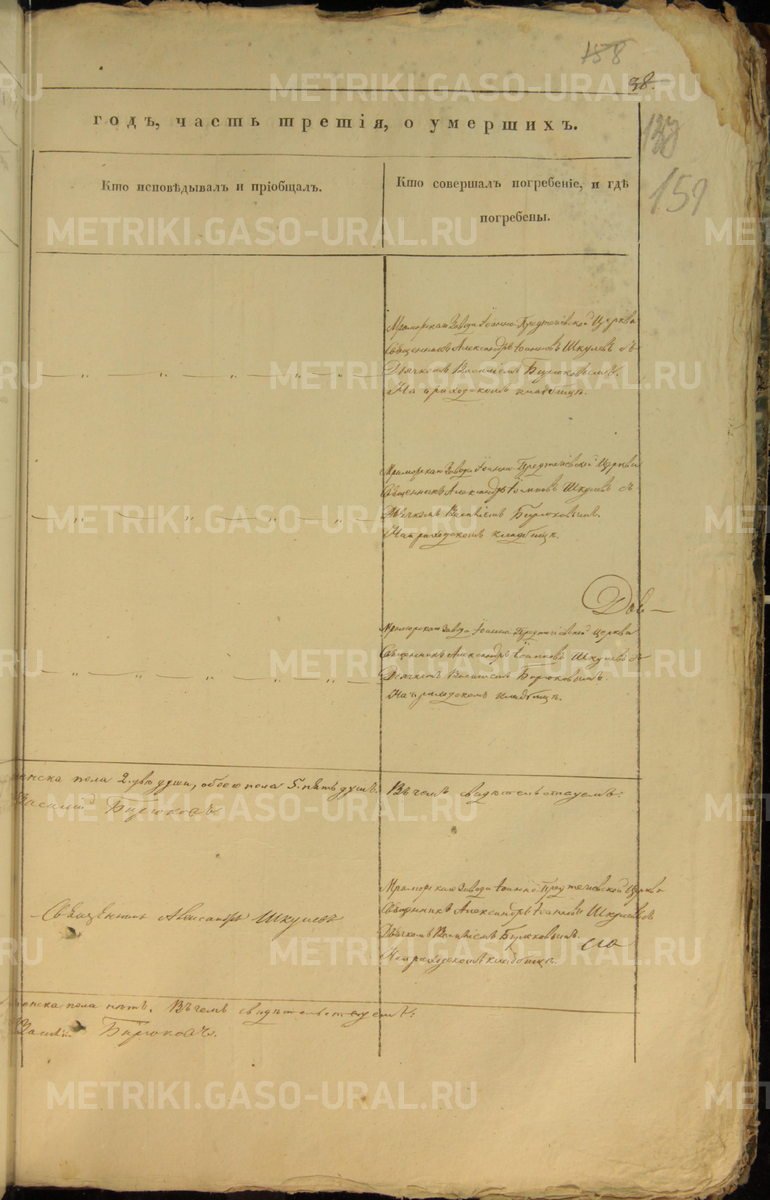 158
38.
годъ, часть третія, о умершихъ.
159
Кто исповѣдывалъ и пріобщалъ.
Кто совершалъ погребеніе, и гдѣ
погребены.
Мраморскаго Завода Іоанно Предтечевской Церкви
Священникъ Александръ Іоанновъ Шкулевъ съ
Дьячкомъ Василіемъ Бирюковымъ.
На приходскомъ кладбищѣ.
Мраморскаго Завода Іоанно Предтечевской Церкви
Священникъ Александръ Іоанновъ Шкулевъ съ
Дьячкомъ Василіемъ Бирюковымъ.
На приходскомъ кладбищѣ.
Мраморскаго Завода Іоанно Предтечевской Церкви
Священникъ Александръ Іоанновъ Шкулевъ съ
Дьячкомъ Василіемъ Бирюковымъ.
На приходскомъ кладбищѣ.
женска пола 2. двѣ души, обоего пола 5. пять душъ. Въ чемъ свидѣтельствуемъ:
Василій Бирюковъ
Священникъ Александръ Шкулевъ
Мраморскаго Завода Іоанно Предтечевской Церкви
Священникъ Александръ Іоанновъ Шкулевъ
Дьячкомъ Василіемъ Бирюковымъ.
На приходскомъ кладбищѣ.
женска пола нѣтъ. Въ чемъ свидѣтельствуемъ:
Василій Бирюковъ.
METRIKI.GASO-URAL.RU